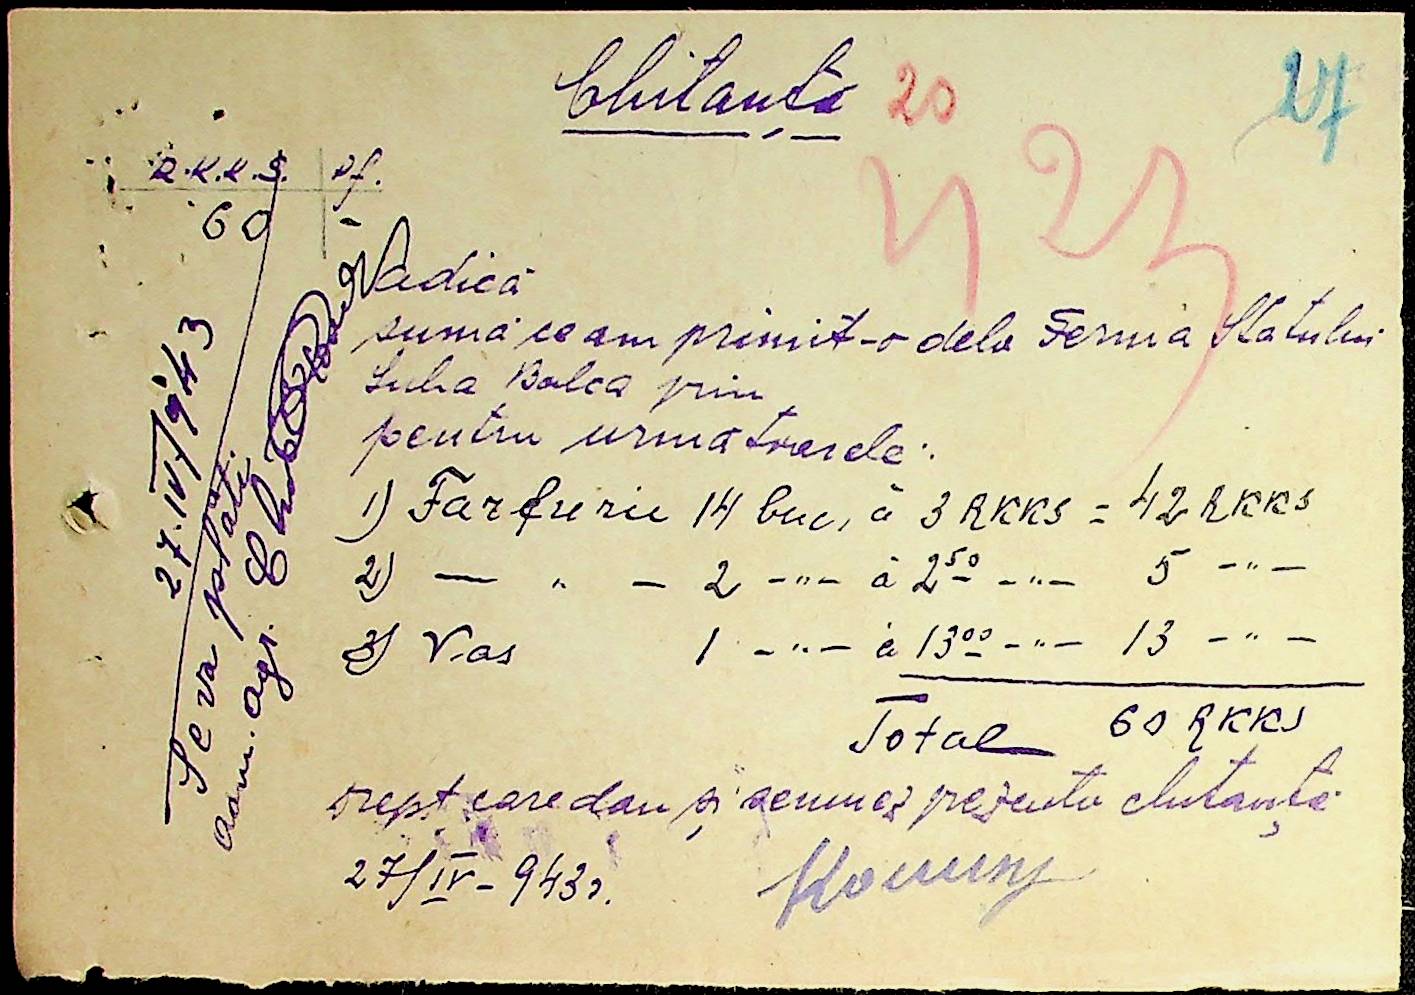 Chitanță
20
27
R.K.K.S. pf.
60 -
adică
suma ce am primit-o dela Ferma Statului
Suha Balca prin
pentru urmatoarele:
1) Farfurie 14 buc, à 3 RKKS = 42 RKKS
2) — " — 2 -"- à 2⁵⁰ -"- 5 -"-
3) Vas 1 -"- à 13⁰⁰ -"- 13 -"-
Total 60 RKKS
drept care dau și semnez prezenta chitanță
27/IV-943.
27.IV/943
Se va plăti
adm. agr.